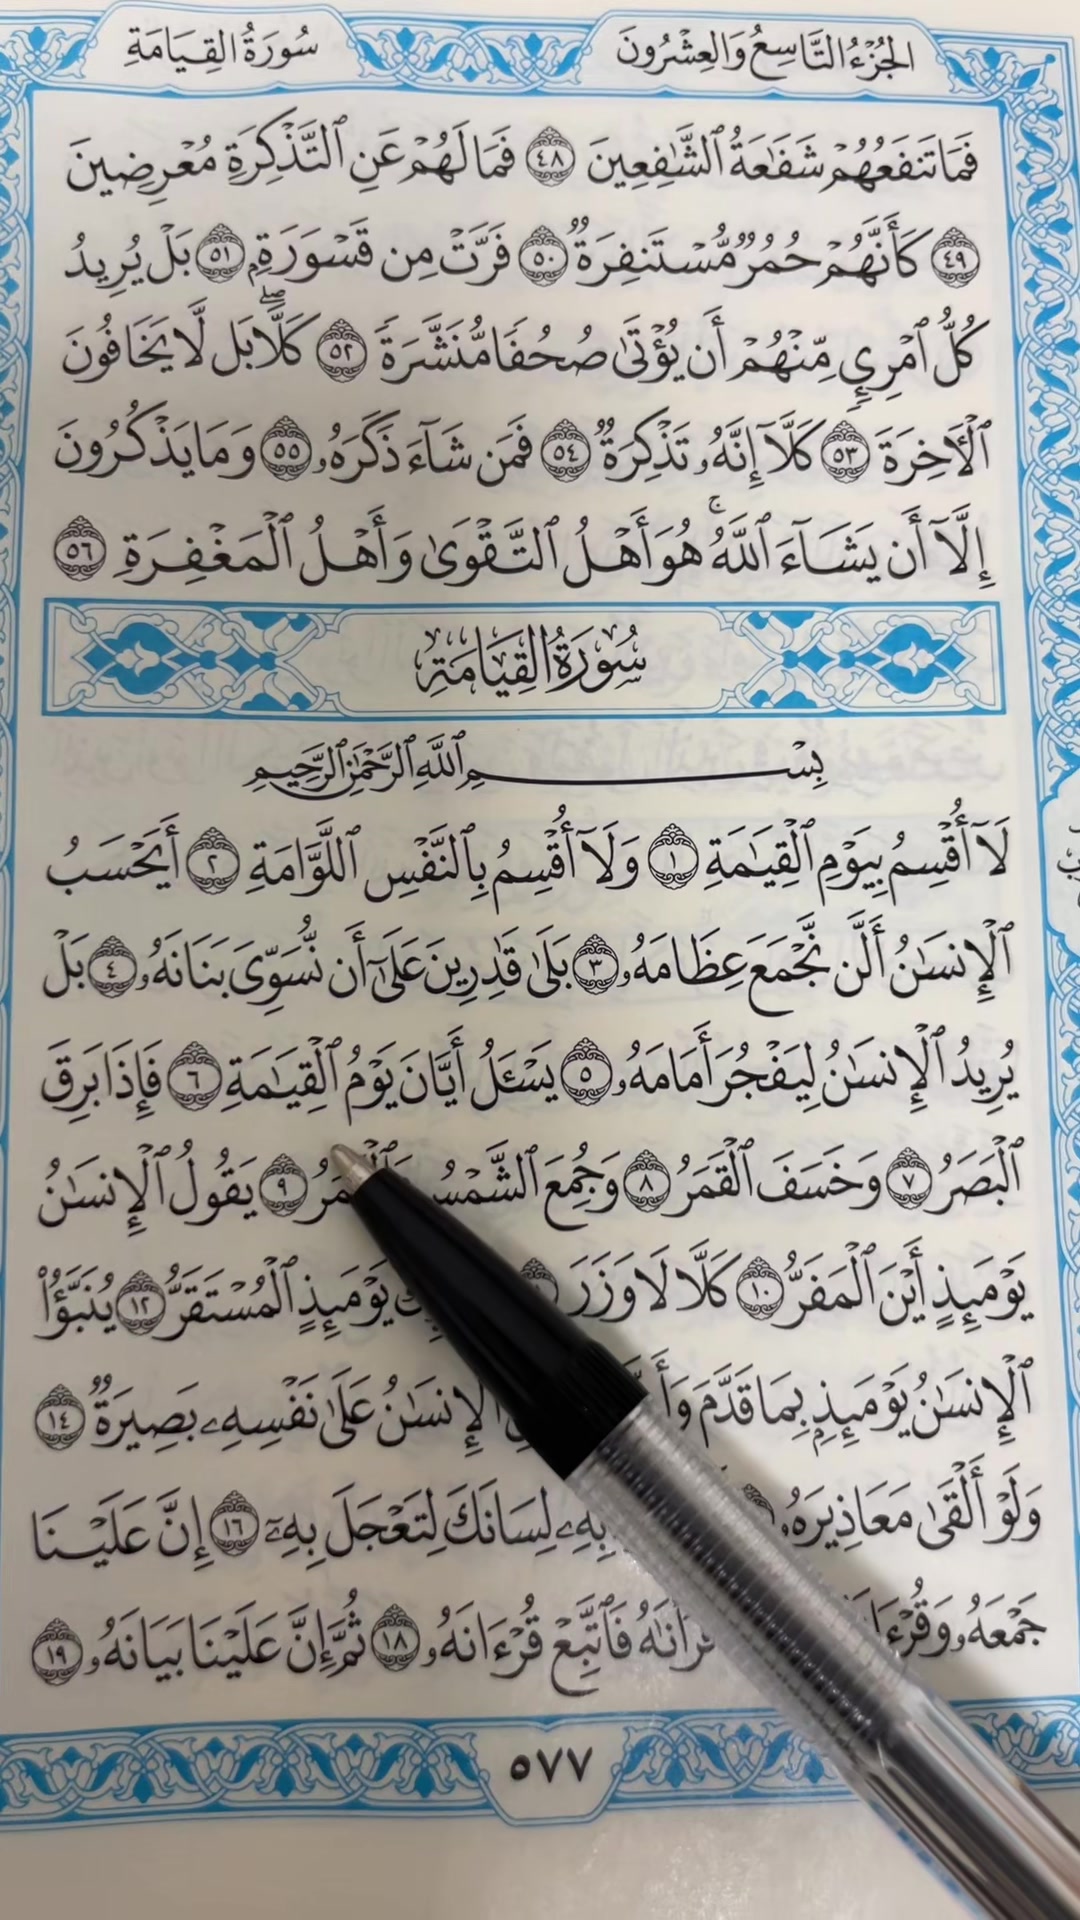 الجُزْءُ التَّاسِعُ وَالعِشْرُونَ
سُورَةُ القِيَامَةِ
فَمَا تَنفَعُهُمْ شَفَٰعَةُ ٱلشَّٰفِعِينَ ٤٨ فَمَا لَهُمْ عَنِ ٱلتَّذْكِرَةِ مُعْرِضِينَ
٤٩ كَأَنَّهُمْ حُمُرٌ مُّسْتَنفِرَةٌ ٥٠ فَرَّتْ مِن قَسْوَرَةٍ ٥١ بَلْ يُرِيدُ
كُلُّ ٱمْرِئٍ مِّنْهُمْ أَن يُؤْتَىٰ صُحُفًا مُّنَشَّرَةً ٥٢ كَلَّا ۖ بَل لَّا يَخَافُونَ
ٱلْأَخِرَةَ ٥٣ كَلَّآ إِنَّهُۥ تَذْكِرَةٌ ٥٤ فَمَن شَآءَ ذَكَرَهُۥ ٥٥ وَمَا يَذْكُرُونَ
إِلَّآ أَن يَشَآءَ ٱللَّهُ ۚ هُوَ أَهْلُ ٱلتَّقْوَىٰ وَأَهْلُ ٱلْمَغْفِرَةِ ٥٦
سُورَةُ القِيَامَةِ
بِسْمِ ٱللَّهِ ٱلرَّحْمَٰنِ ٱلرَّحِيمِ
لَآ أُقْسِمُ بِيَوْمِ ٱلْقِيَٰمَةِ ١ وَلَآ أُقْسِمُ بِٱلنَّفْسِ ٱللَّوَّامَةِ ٢ أَيَحْسَبُ
ٱلْإِنسَٰنُ أَلَّن نَّجْمَعَ عِظَامَهُۥ ٣ بَلَىٰ قَٰدِرِينَ عَلَىٰٓ أَن نُّسَوِّىَ بَنَانَهُۥ ٤ بَلْ
يُرِيدُ ٱلْإِنسَٰنُ لِيَفْجُرَ أَمَامَهُۥ ٥ يَسْـَٔلُ أَيَّانَ يَوْمُ ٱلْقِيَٰمَةِ ٦ فَإِذَا بَرِقَ
ٱلْبَصَرُ ٧ وَخَسَفَ ٱلْقَمَرُ ٨ وَجُمِعَ ٱلشَّمْسُ وَٱلْقَمَرُ ٩ يَقُولُ ٱلْإِنسَٰنُ
يَوْمَئِذٍ أَيْنَ ٱلْمَفَرُّ ١٠ كَلَّا لَا وَزَرَ يَوْمَئِذٍ ٱلْمُسْتَقَرُّ ١٢ يُنَبَّؤُا۟
ٱلْإِنسَٰنُ يَوْمَئِذٍۭ بِمَا قَدَّمَ ٱلْإِنسَٰنُ عَلَىٰ نَفْسِهِۦ بَصِيرَةٌ ١٤
وَلَوْ أَلْقَىٰ مَعَاذِيرَهُۥ بِهِۦ لِسَانَكَ لِتَعْجَلَ بِهِۦٓ ١٦ إِنَّ عَلَيْنَا
جَمْعَهُۥ فَٱتَّبِعْ قُرْءَانَهُۥ ١٨ ثُمَّ إِنَّ عَلَيْنَا بَيَانَهُۥ ١٩
٥٧٧